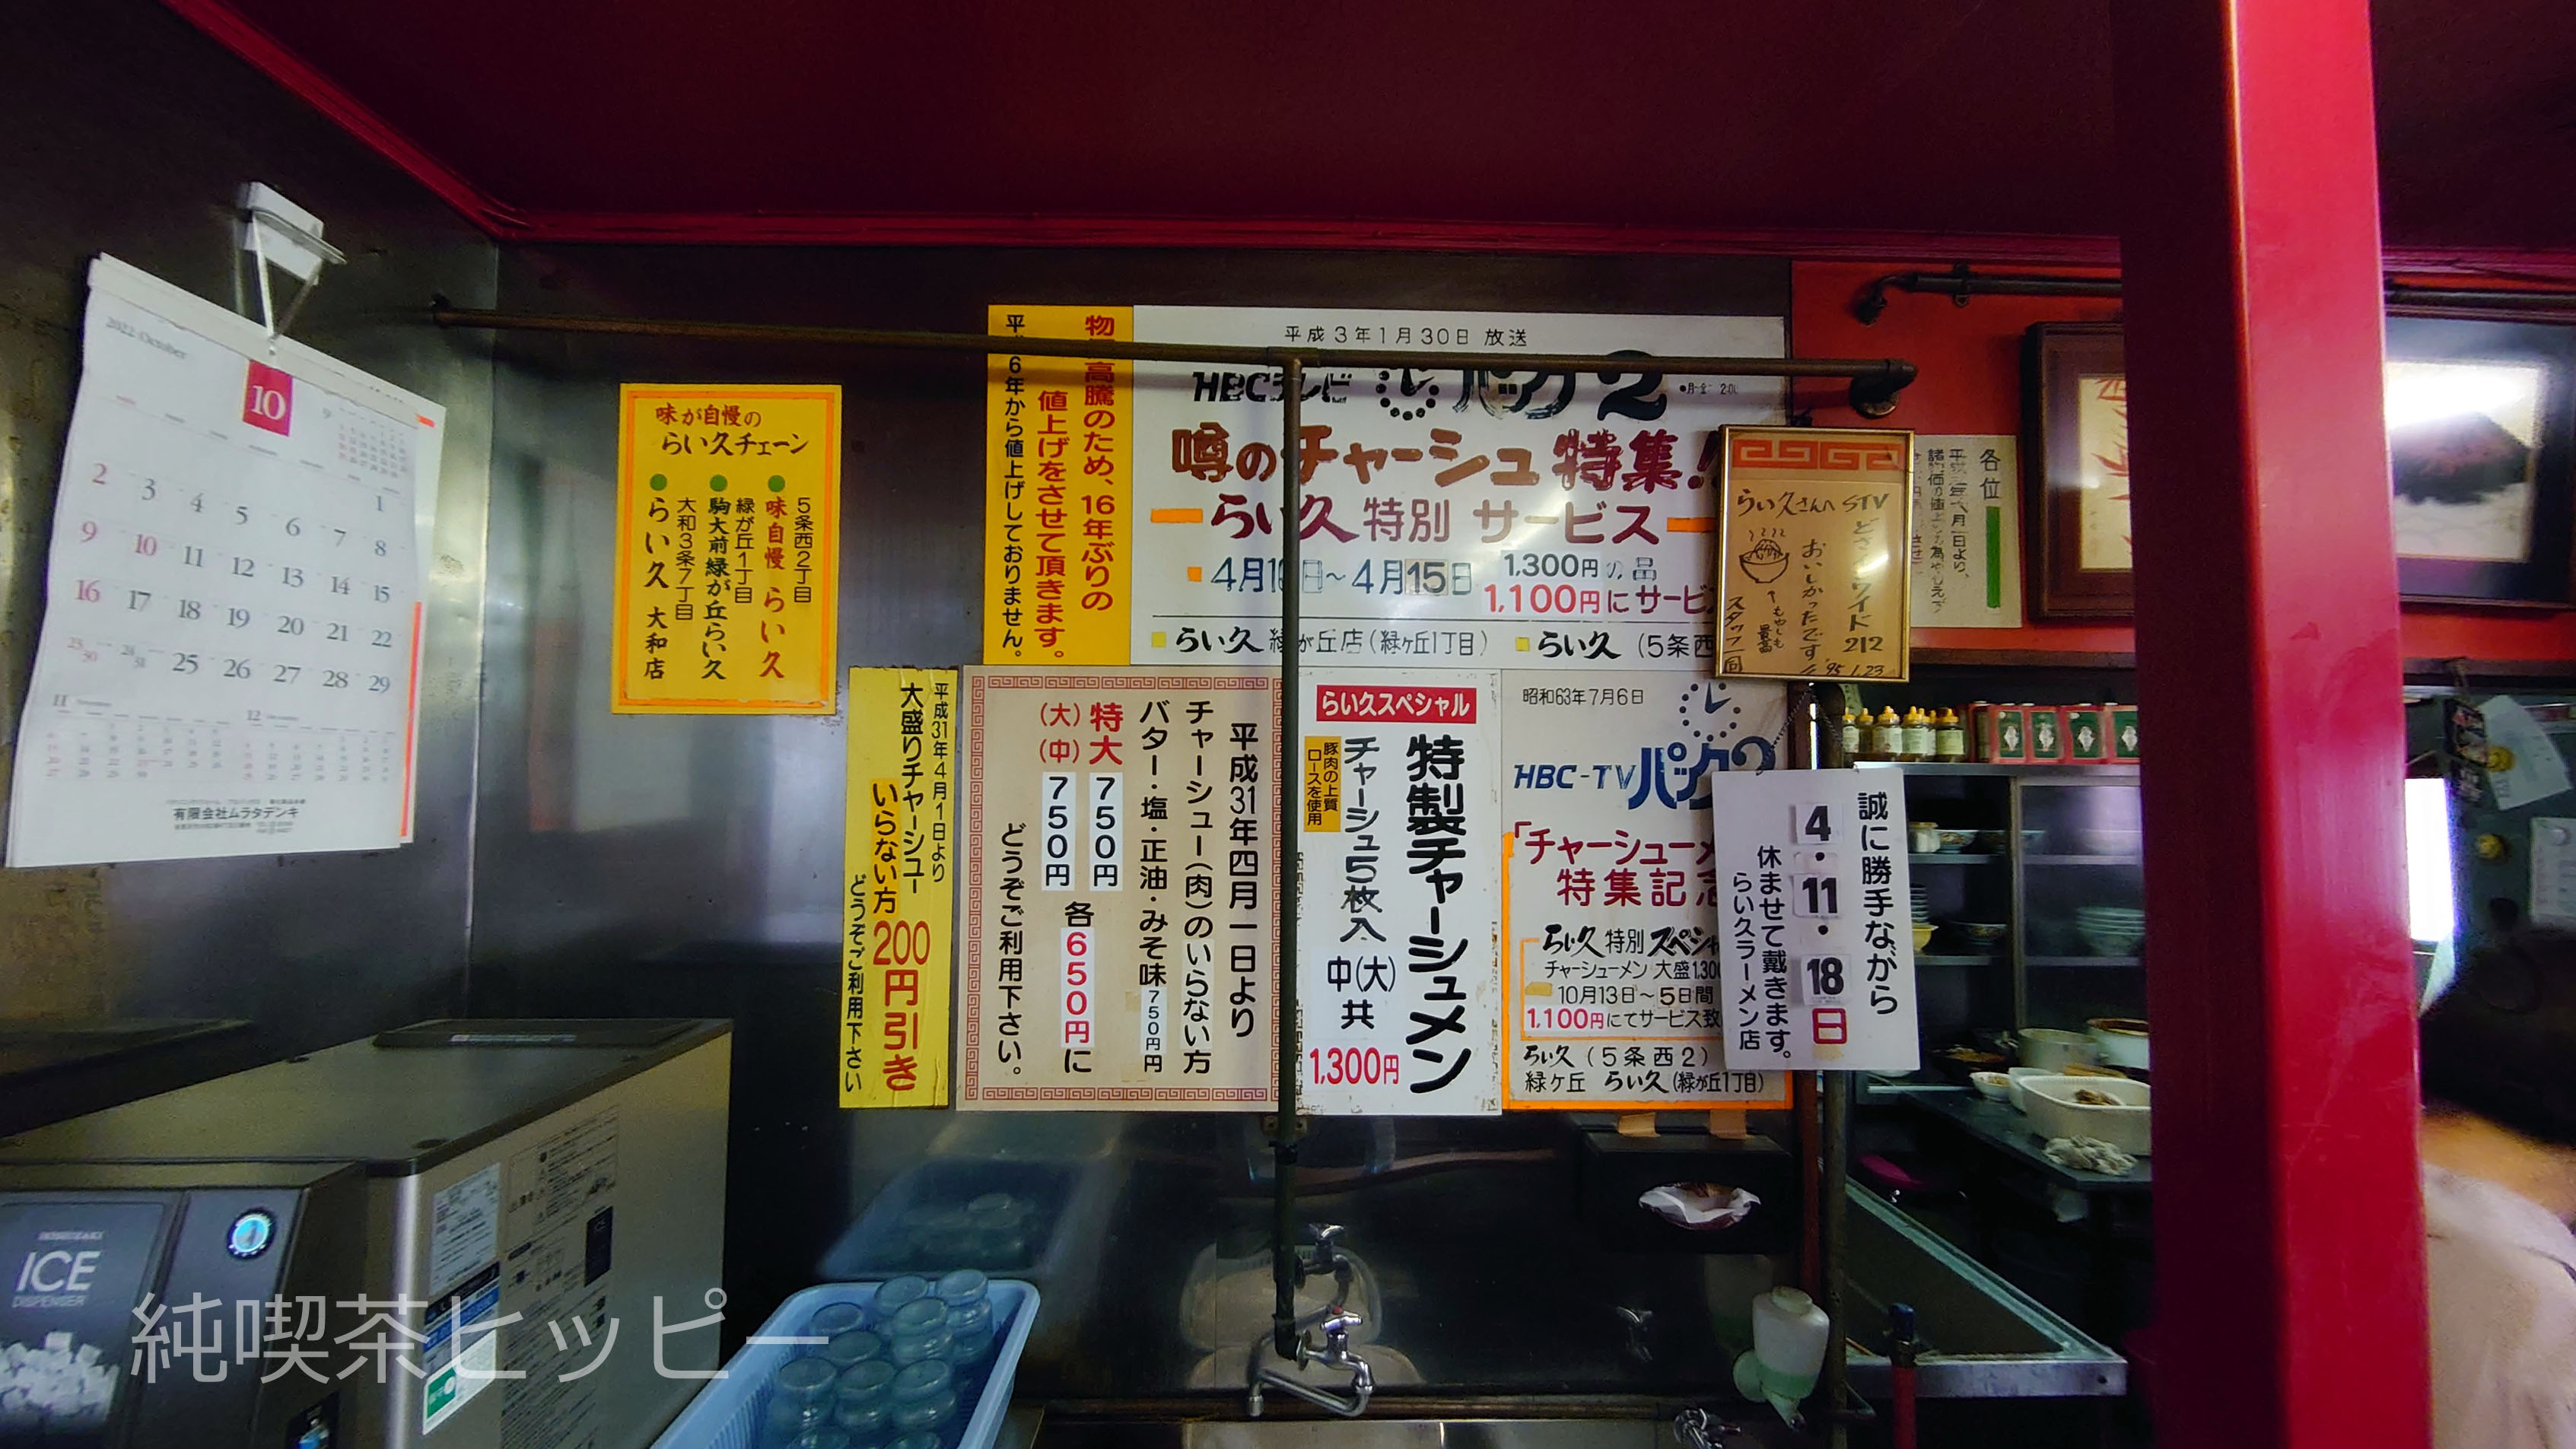 2022 October
10
9
1
2 3 4 5 6 7 8
9 10 11 12 13 14 15
16 17 18 19 20 21 22
23/30 24/31 25 26 27 28 29
11
12
有限会社ムラタデンキ
味が自慢の
らい久チェーン
5条西2丁目
味自慢 らい久
緑が丘1丁目
駒大前緑が丘らい久
大和3条7丁目
らい久 大和店
物 高騰のため、16年ぶりの
値上げをさせて頂きます。
平 6年から値上げしておりません。
平成3年1月30日 放送
HBCテレビ パック2
噂のチャーシュ特集!
らい久特別 サービス
4月1 日~4月15日
1,300円の品
1,100円にサービ
らい久 緑が丘店(緑ヶ丘1丁目)
らい久 (5条西
らい久さんへ STV
どさんこワイド
212
おいしかったです
もやしも
最高
スタッフ一同
'95 1.23
各位
平成31年4月1日より
大盛りチャーシュー
いらない方
200円引き
どうぞご利用下さい
平成31年四月一日より
チャーシュー(肉)のいらない方
バター・塩・正油・みそ味750円円
特大 750円
(大)(中) 750円
各650円に
どうぞご利用下さい。
らい久スペシャル
特製チャーシュメン
チャーシュ5枚入
豚肉の上質
ロースを使用
中(大)
共
1,300円
昭和63年7月6日
HBC-TVパック2
「チャーシューメ
特集記念
らい久特別スペシャ
チャーシューメン大盛1,300
10月13日~5日間
1,100円にてサービス致
らい久(5条西2)
緑ケ丘 らい久(緑が丘1丁目)
誠に勝手ながら
4・11・18日
休ませて戴きます。
らい久ラーメン店
HOSHIZAKI
ICE
DISPENSER
純喫茶ヒッピー